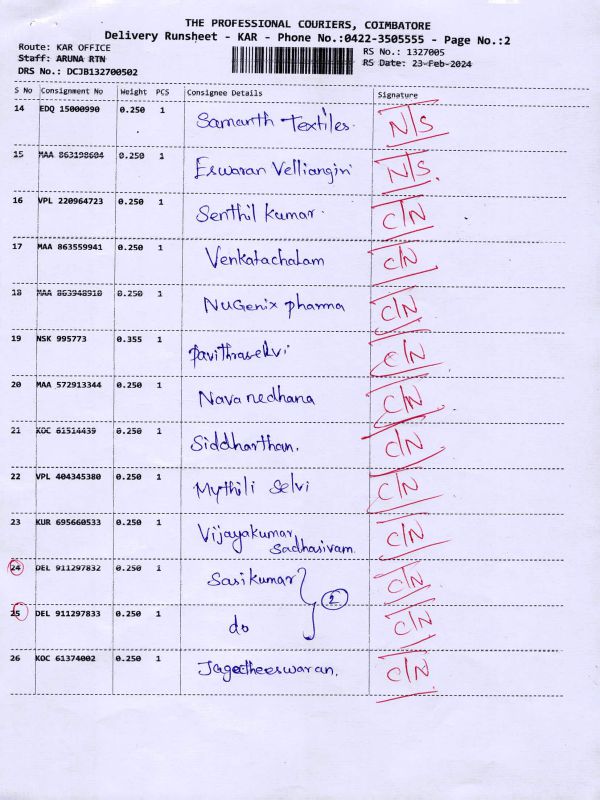 THE PROFESSIONAL COURIERS, COIMBATORE
Delivery Runsheet - KAR - Phone No.:0422-3505555 - Page No.:2
Route: KAR OFFICE RS No.: 1327005
Staff: ARUNA RTN RS Date: 23-Feb-2024
DRS No.: DCJB132700502
S No Consignment No Weight PCS Consignee Details Signature
14 EDQ 15000990 0.250 1 Samarth Textiles. N/S
15 MAA 863198604 0.250 1 Eswaran Velliangiri N/S.
16 VPL 220964723 0.250 1 Senthil Kumar. C/N
17 MAA 863559941 0.250 1 Venkatachalam C/N
18 MAA 863948910 0.250 1 NuGenix pharma C/N
19 NSK 995773 0.355 1 Pavithraselvi C/N
20 MAA 572913344 0.250 1 Nava nedhana C/N
21 KOC 61514439 0.250 1 Siddharthan. C/N
22 VPL 404345380 0.250 1 Mythili Selvi C/N
23 KUR 695660533 0.250 1 Vijayakumar C/N
Sadhasivam.
24 DEL 911297832 0.250 1 Sasikumar C/N
2
25 DEL 911297833 0.250 1 do C/N
26 KOC 61374002 0.250 1 Jagatheeswaran. C/N